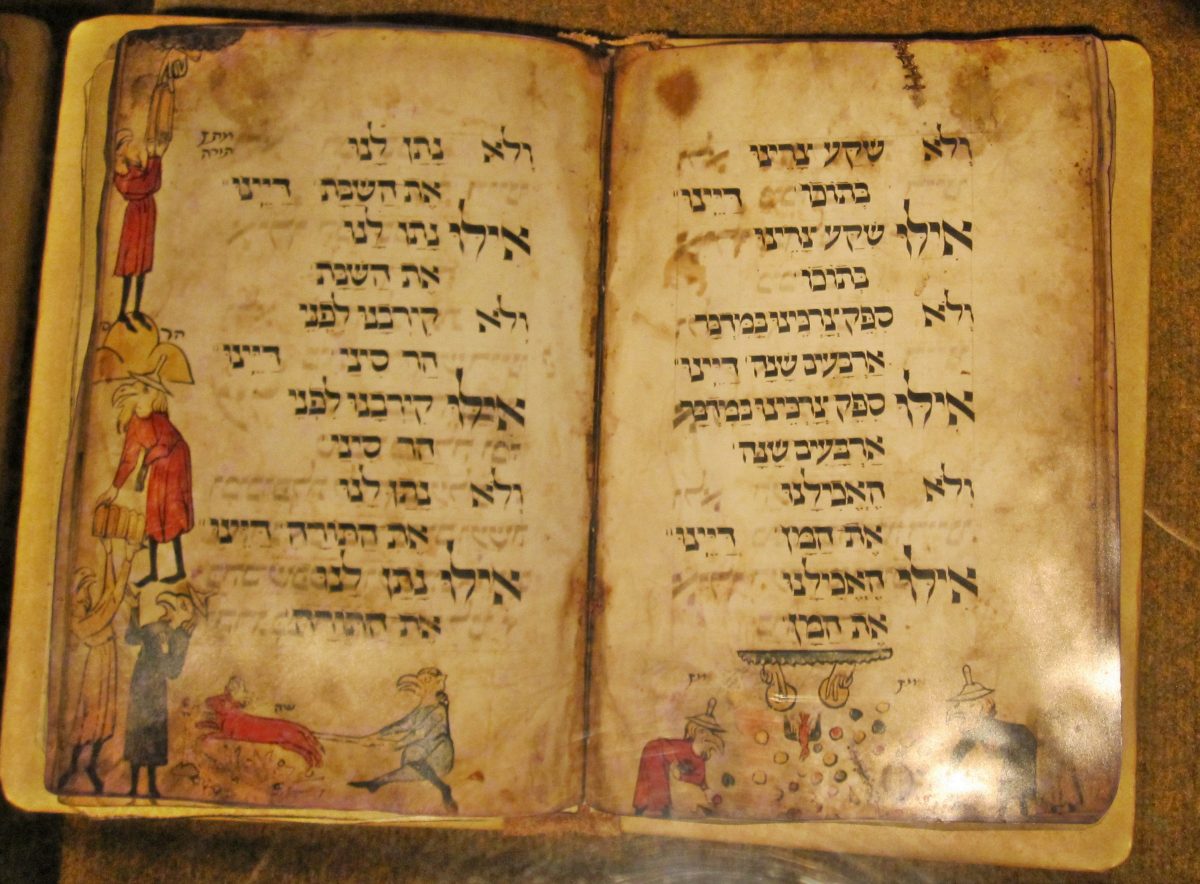 ולא שקע צרינו
בתוכו דיינו
אילו שקע צרינו
בתוכו
ולא ספק צרכינו במדבר
ארבעים שנה דיינו
אילו ספק צרכינו במדבר
ארבעים שנה
ולא האכילנו
את המן דיינו
אילו האכילנו
את המן
ולא נתן לנו
את השבת דיינו
אילו נתן לנו
את השבת
ולא קירבנו לפני
הר סיני דיינו
אילו קירבנו לפני
הר סיני
ולא נתן לנו
את התורה דיינו
אילו נתן לנו
את התורה
מתן
תורה
הר